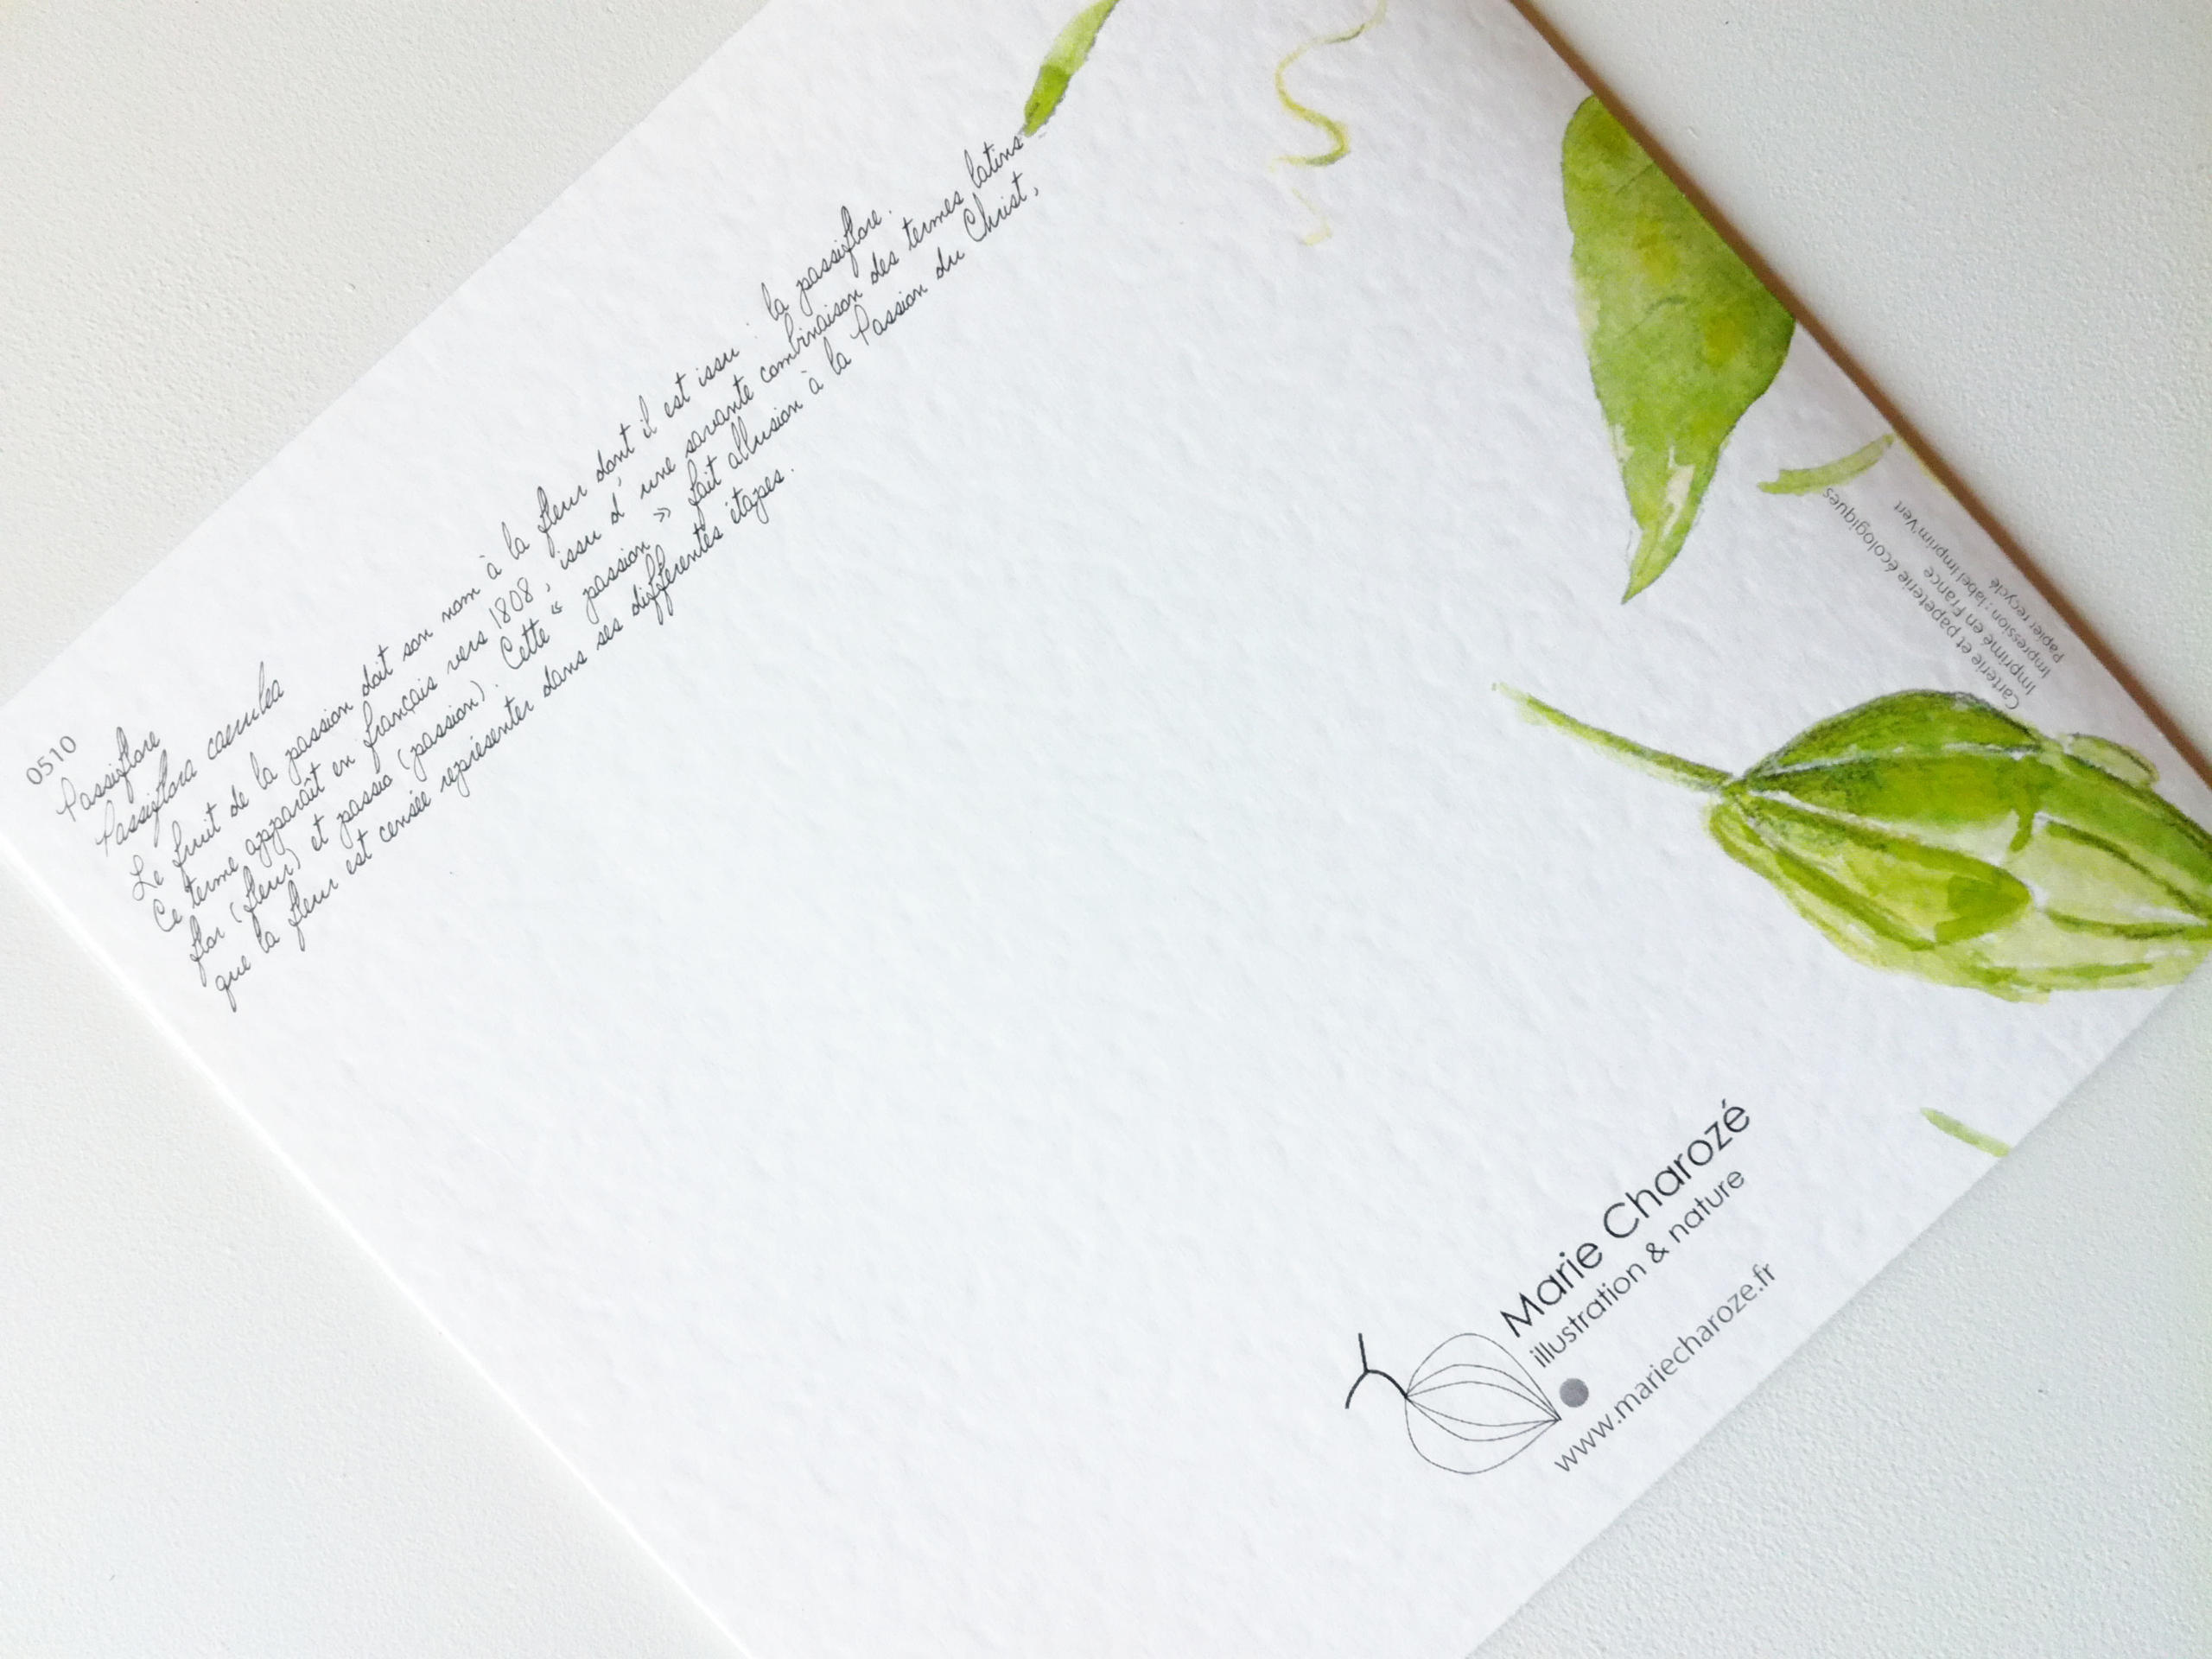 0510
Passiflore
Passiflora caerulea
Le fruit de la passion doit son nom à la fleur dont il est issu : la passiflore.
Ce terme apparaît en français vers 1808, issu d'une savante combinaison des termes latins
flor (fleur) et passio (passion). Cette « passion » fait allusion à la Passion du Christ,
que la fleur est censée représenter dans ses différentes étapes.
Marie Charozé
illustration & nature
www.mariecharoze.fr
Carterie et papeterie écologiques
Imprimé en France
Impression : label Imprim'Vert
Papier recyclé